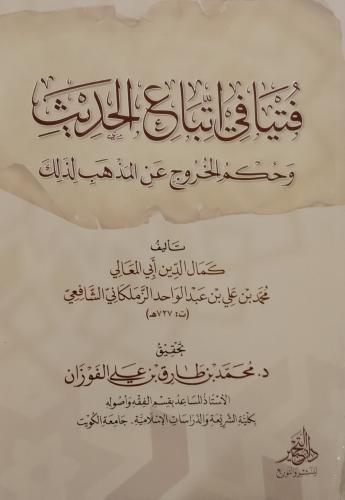 فُتْيَا فِي اتِّبَاعِ الحَدِيثِ
وَحُكْمُ الخُرُوجِ عَنِ المَذْهَبِ لِذَلِكَ
تأليف
كمال الدين أبي المعالي
محمد بن علي بن عبد الواحد الزملكاني الشافعي
(ت: ٧٢٧هـ)
تحقيق
د. محمد بن طارق بن علي الفوزان
الأستاذ المساعد بقسم الفقه وأصوله
بكلية الشريعة والدراسات الإسلامية - جامعة الكويت
للنشر والتوزيع